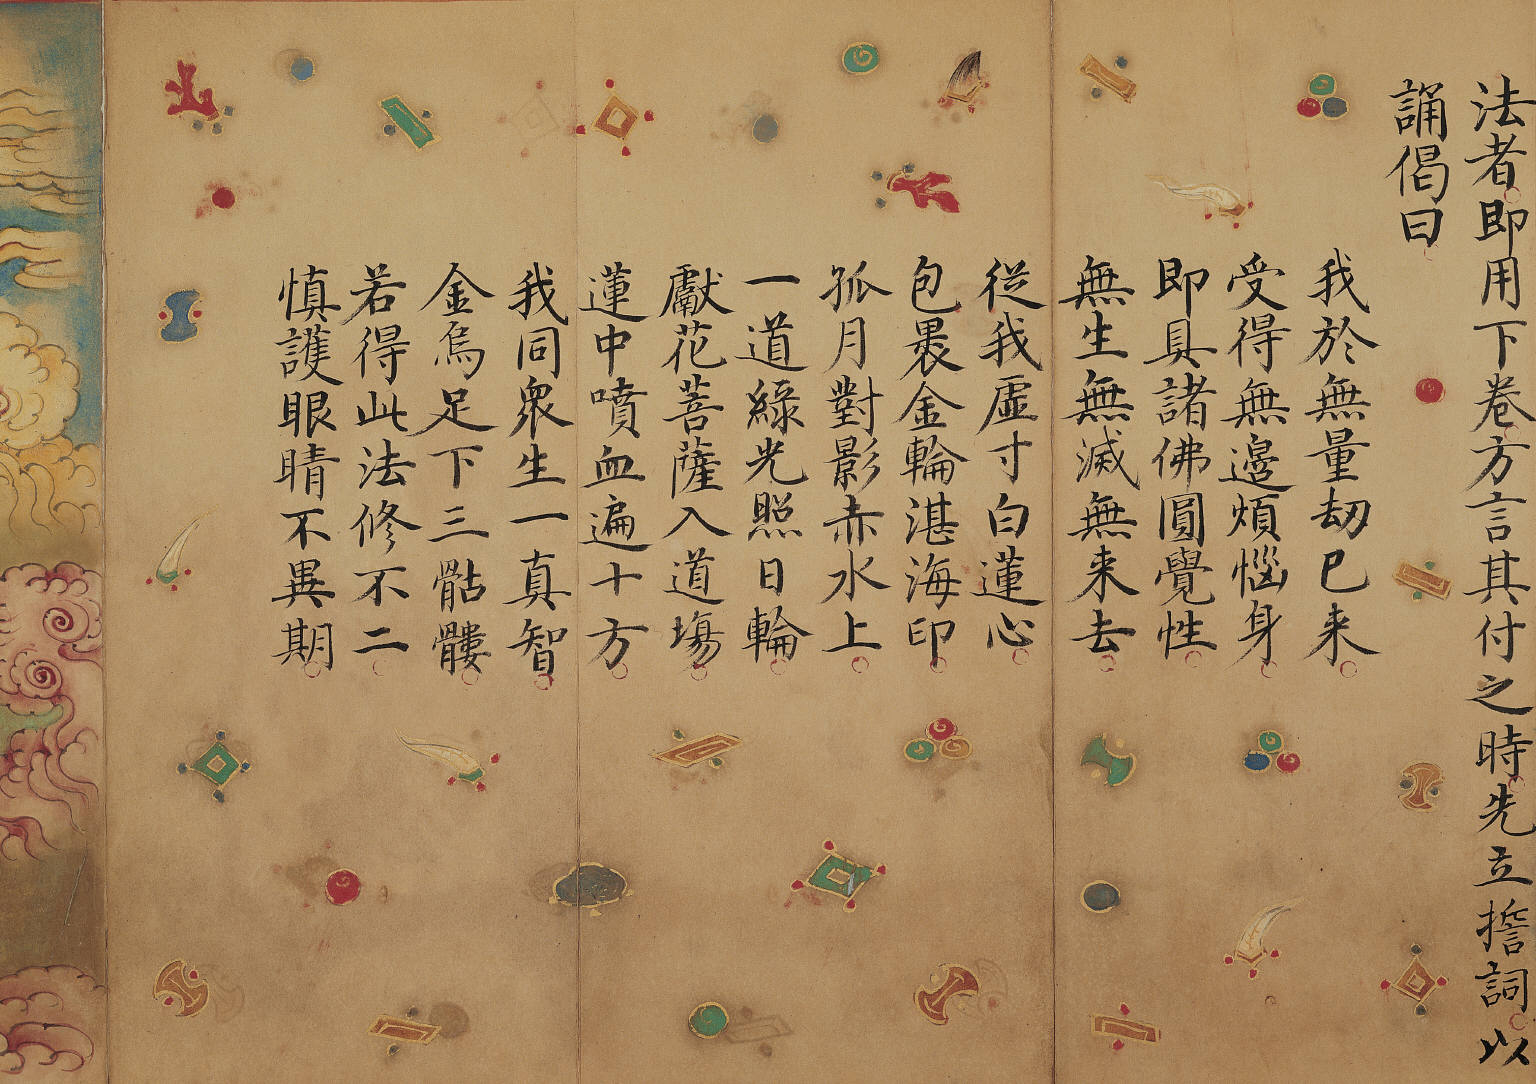 法者即用下卷方言其付之時先立擔詞以
誦偈曰
我於無量劫已来
受得無邊煩惱身
即具諸佛圓覺性
無生無滅無来去
従我虛寸白蓮心
包褁金輪湛海印
孤月對影赤水上
一道綠光照日輪
獻花菩薩入道場
蓮中噴血遍十方
我同衆生一真智
金烏足下三骷髏
若得此法修不二
慎護眼睛不異期